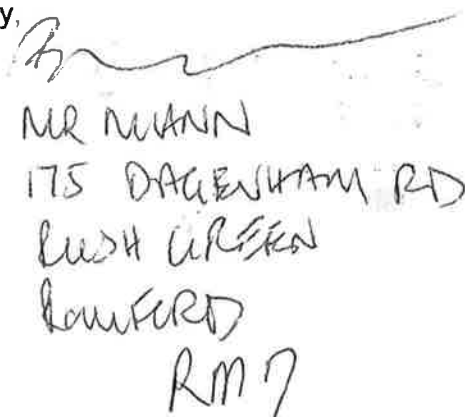 y,
MR MANN
175 DAGENHAM RD
RUSH GREEN
ROMFORD
RM7